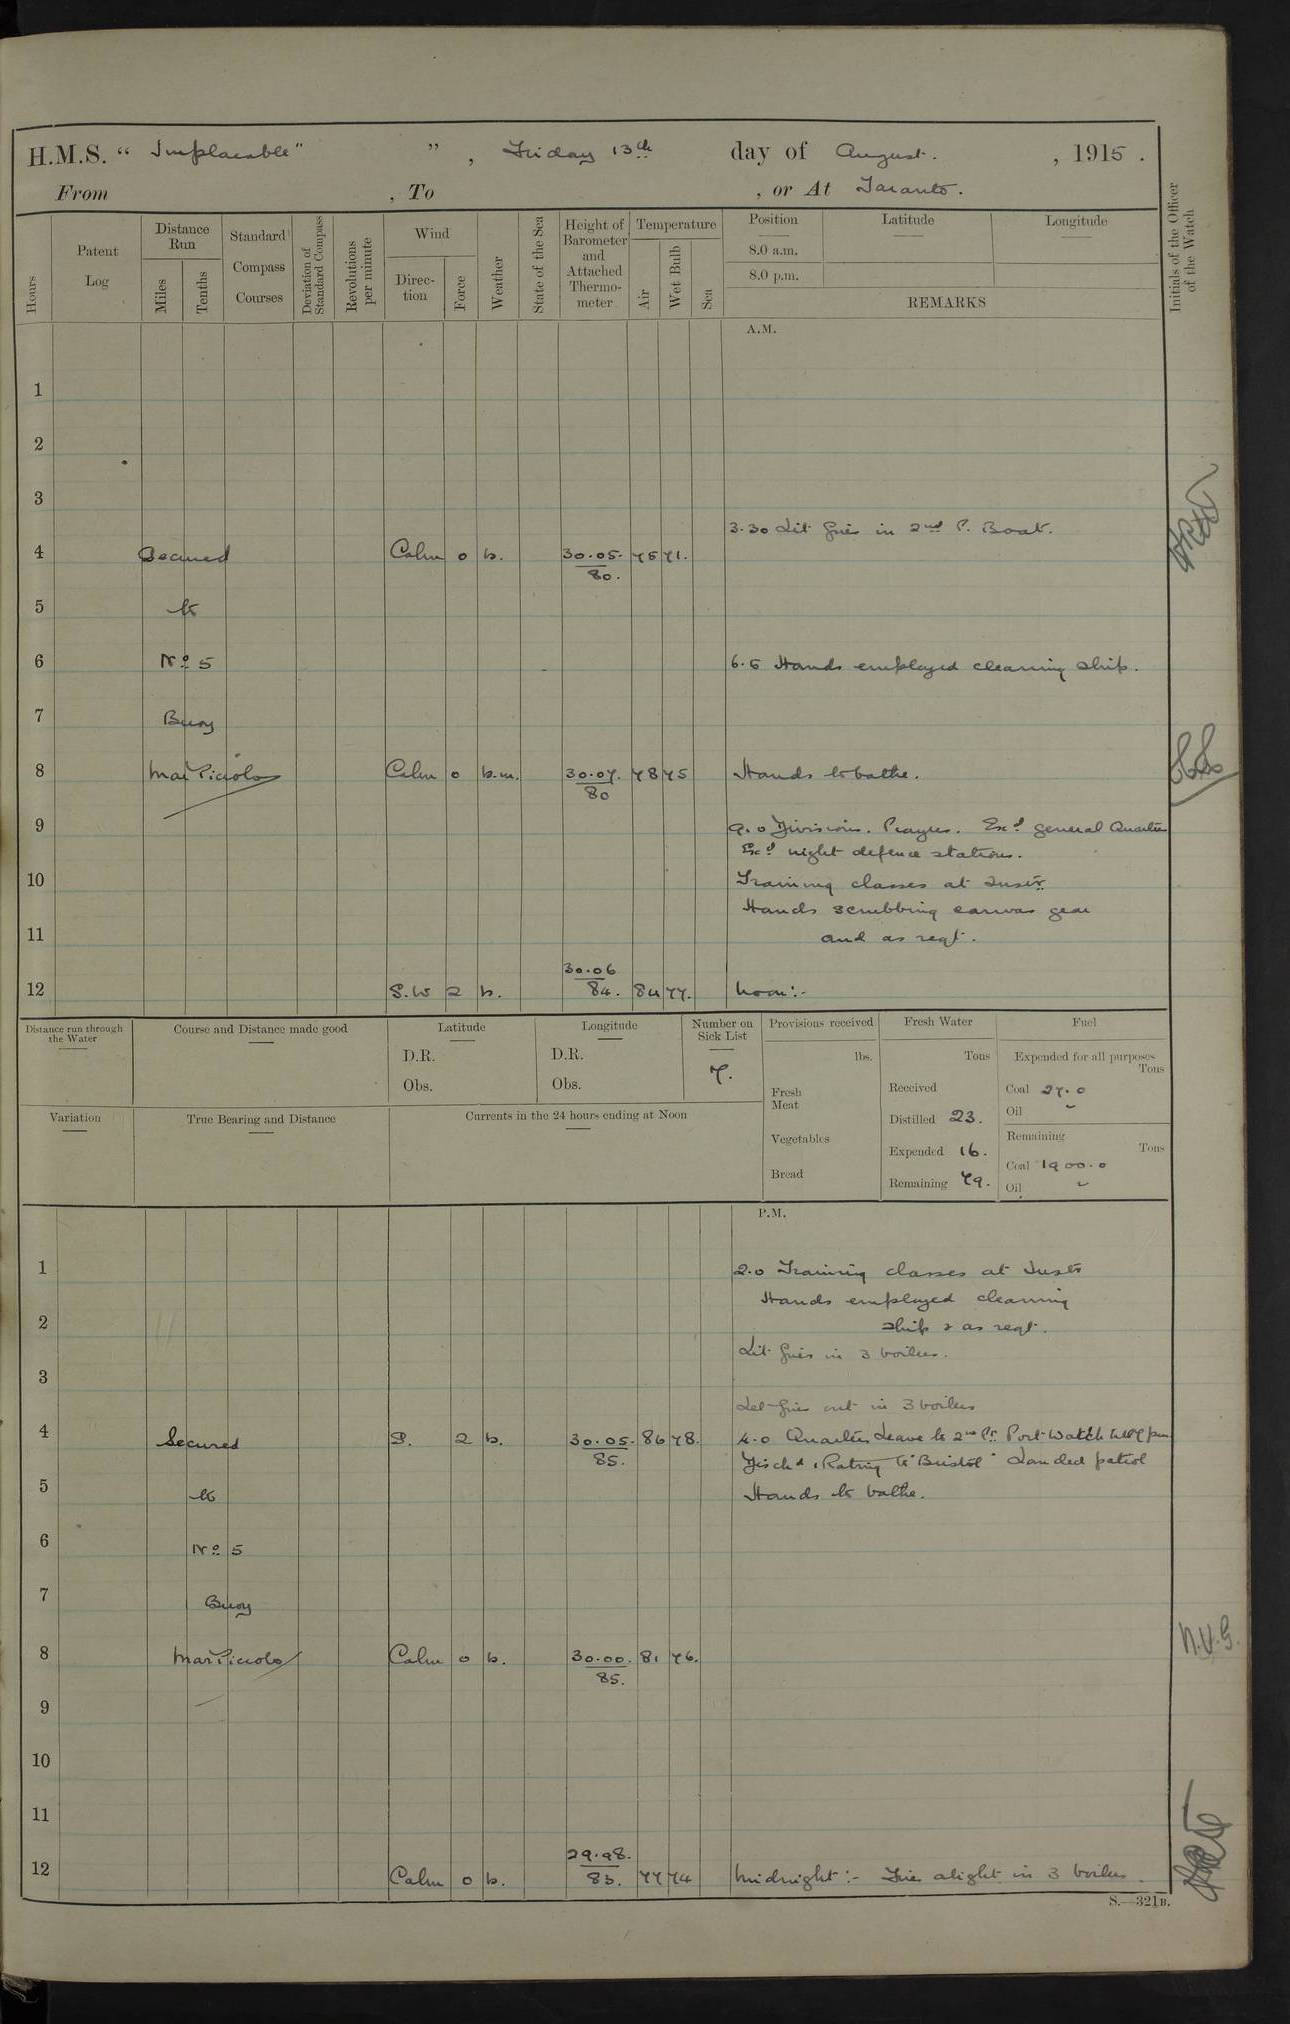 H.M.S. “ Implacable" ” , Friday 13th day of August. , 1915 .
From , To , or At Taranto.
Hours
Patent Log
Distance Run
Miles
Tenths
Standard Compass Courses
Deviation of Standard Compass
Revolutions per minute
Wind
Direction
Force
Weather
State of the Sea
Height of Barometer and Attached Thermometer
Temperature
Air
Wet Bulb
Sea
Position
8.0 a.m.
8.0 p.m.
Latitude
Longitude
REMARKS
Initials of the Officer of the Watch
A.M.
1
2
3
3.30 Lit fires in 2nd P. Boat.
4 Secured Calm 0 b. 30.05. 75 71.
80.
5 to
6 No 5 6.5 Hands employed cleaning ship.
7 Buoy
8 Mar Piccolo Calm 0 b.m. 30.07. 78 75 Hands to bathe.
80
9 9.0 Divisions. Prayers. Exd general Quarters
Exd night defence stations.
10 Training classes at Instn
Hands scrubbing canvas gear
11 and as reqt.
30.06
12 S.W 2 b. 84. 84 77. Noon:-
Distance run through the Water
Course and Distance made good
Latitude
D.R.
Obs.
Longitude
D.R.
Obs.
Number on Sick List
7.
Provisions received
lbs.
Fresh Meat
Vegetables
Bread
Fresh Water
Tons
Received
Distilled 23.
Expended 16.
Remaining 79.
Fuel
Expended for all purposes
Tons
Coal 27.0
Oil
Remaining
Tons
Coal 1900.0
Oil
Variation
True Bearing and Distance
Currents in the 24 hours ending at Noon
P.M.
1 2.0 Training classes at Instn
Hands employed cleaning
2 ship & as reqt.
Lit fires in 3 boilers.
3
Let fires out in 3 boilers
4 Secured S. 2 b. 30.05. 86 78. 4.0 Quarters Leave to 2nd Pt Port Watch till 7 pm
85.
Disch'd 1 Rating to "Bristol" Landed patrol
5 to Hands to bathe.
6 No 5
7 Buoy
8 Mar Piccolo Calm 0 b. 30.00. 81 76. N.V.G.
85.
9
10
11
29.98.
12 Calm 0 b. 83. 77 74 Midnight:- Fires alight in 3 boilers.
S.—321B.